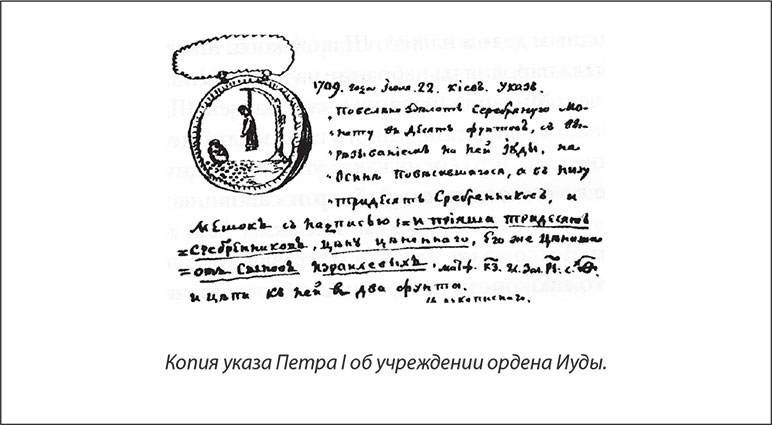 1709. года Iюля. 22. Кiевъ. Указъ.
Повелено Дѣлать Серебряную Мо-
нету въ десять фунтовъ, съ
на ней Iуды, на
Осинѣ Повѣсившагося, а въ низу
Тридесять Сребренниковъ, и
Мѣшокъ съ надписью: и прiяша тридесять
Сребренниковъ, цѣну цѣненнаго, Его же цѣниша
отъ Сыновъ Израилевыхъ,
и цѣпи къ ней въ два фунта.
Копия указа Петра I об учреждении ордена Иуды.